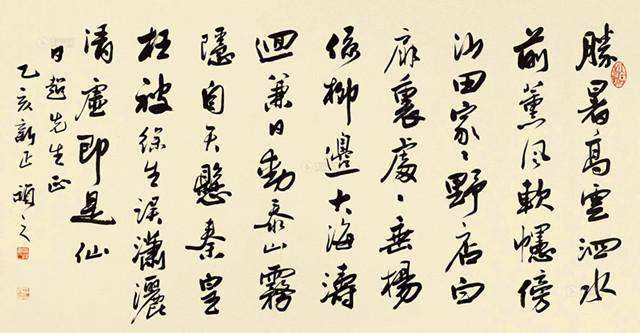 勝暑高雲泗水
前薰風軟幰傍
山田家々野店白
麻裏處々垂楊
係柳邊大海濤
迴兼日動泰山霧
隱自天懸秦皇
枉被徐生誤瀟灑
清虛即是仙
日超先生正
乙亥新正頌之